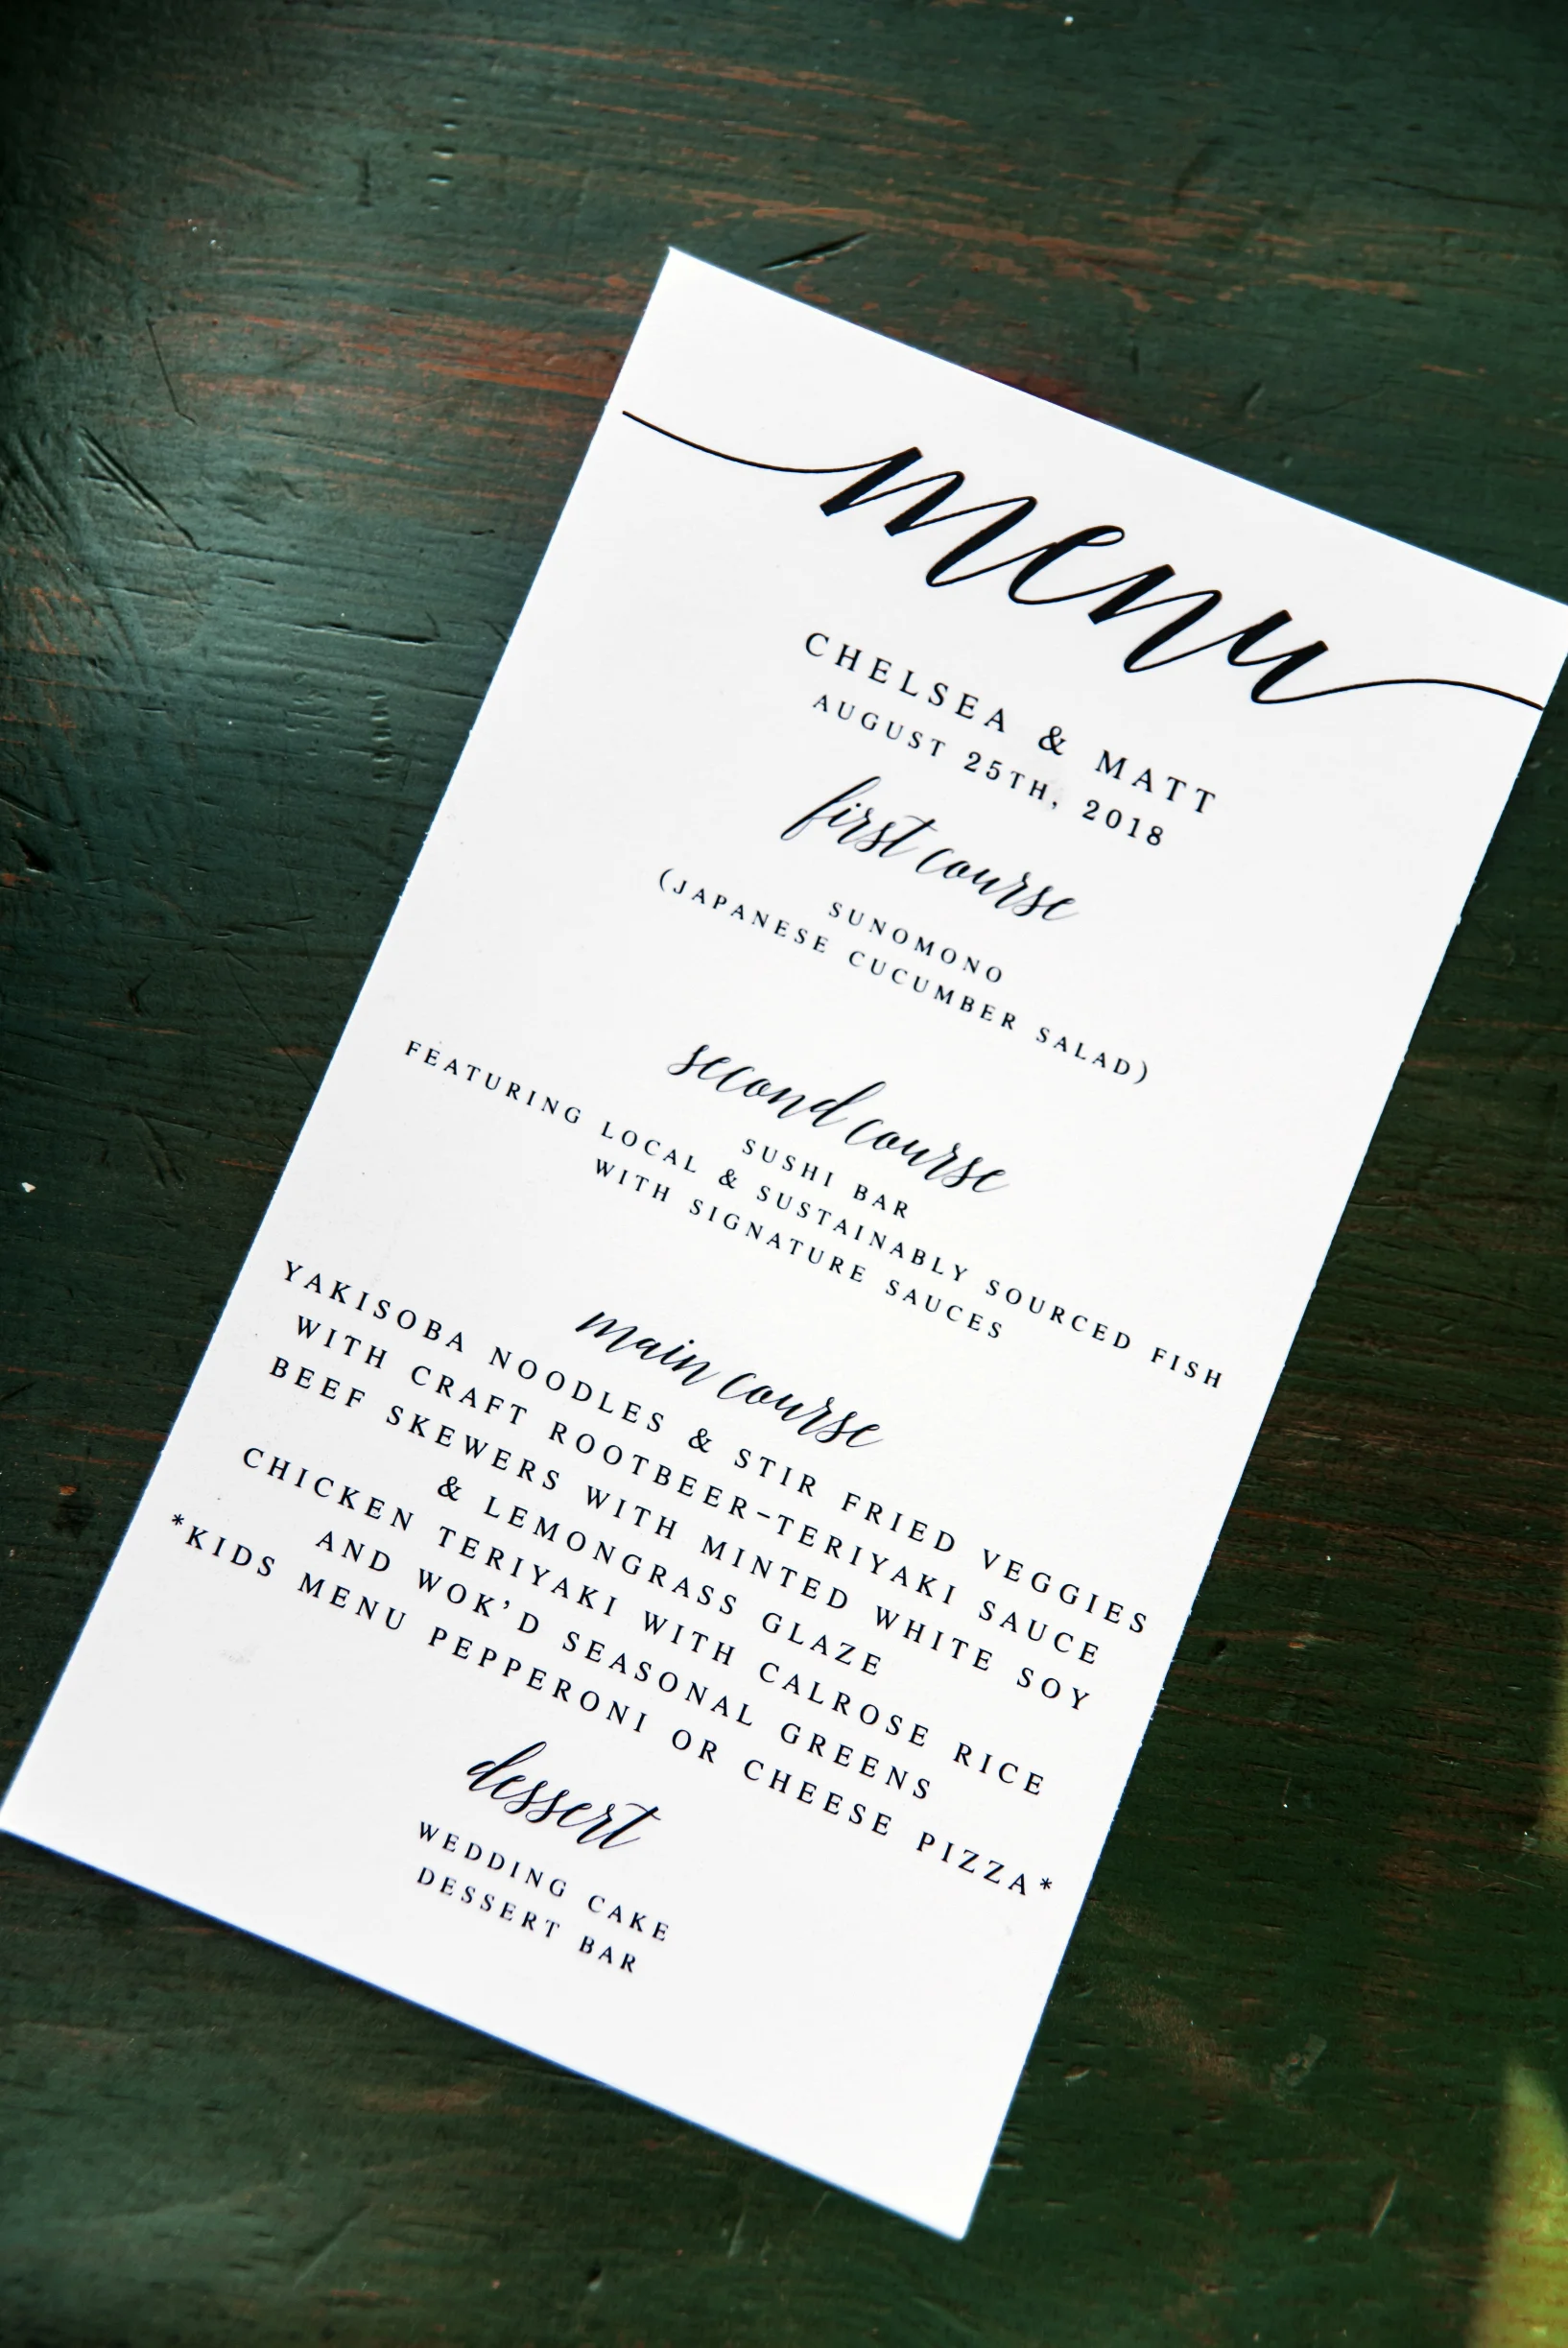 menu
CHELSEA & MATT
AUGUST 25TH, 2018
first course
SUNOMONO
(JAPANESE CUCUMBER SALAD)
second course
SUSHI BAR
FEATURING LOCAL & SUSTAINABLY SOURCED FISH
WITH SIGNATURE SAUCES
main course
YAKISOBA NOODLES & STIR FRIED VEGGIES
WITH CRAFT ROOTBEER-TERIYAKI SAUCE
BEEF SKEWERS WITH MINTED WHITE SOY
& LEMONGRASS GLAZE
CHICKEN TERIYAKI WITH CALROSE RICE
AND WOK'D SEASONAL GREENS
*KIDS MENU PEPPERONI OR CHEESE PIZZA*
dessert
WEDDING CAKE
DESSERT BAR